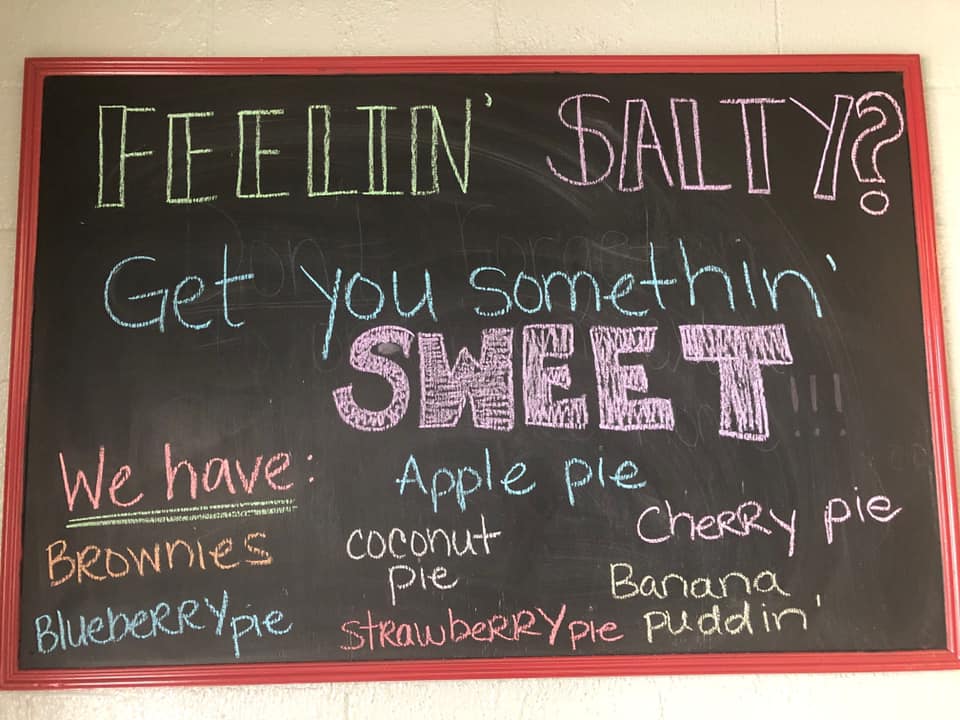 FEELIN' SALTY?
Get you somethin'
SWEET!!!
We have:
Apple pie
Cherry pie
Brownies
coconut
pie
Banana
puddin'
Blueberry pie
Strawberry pie